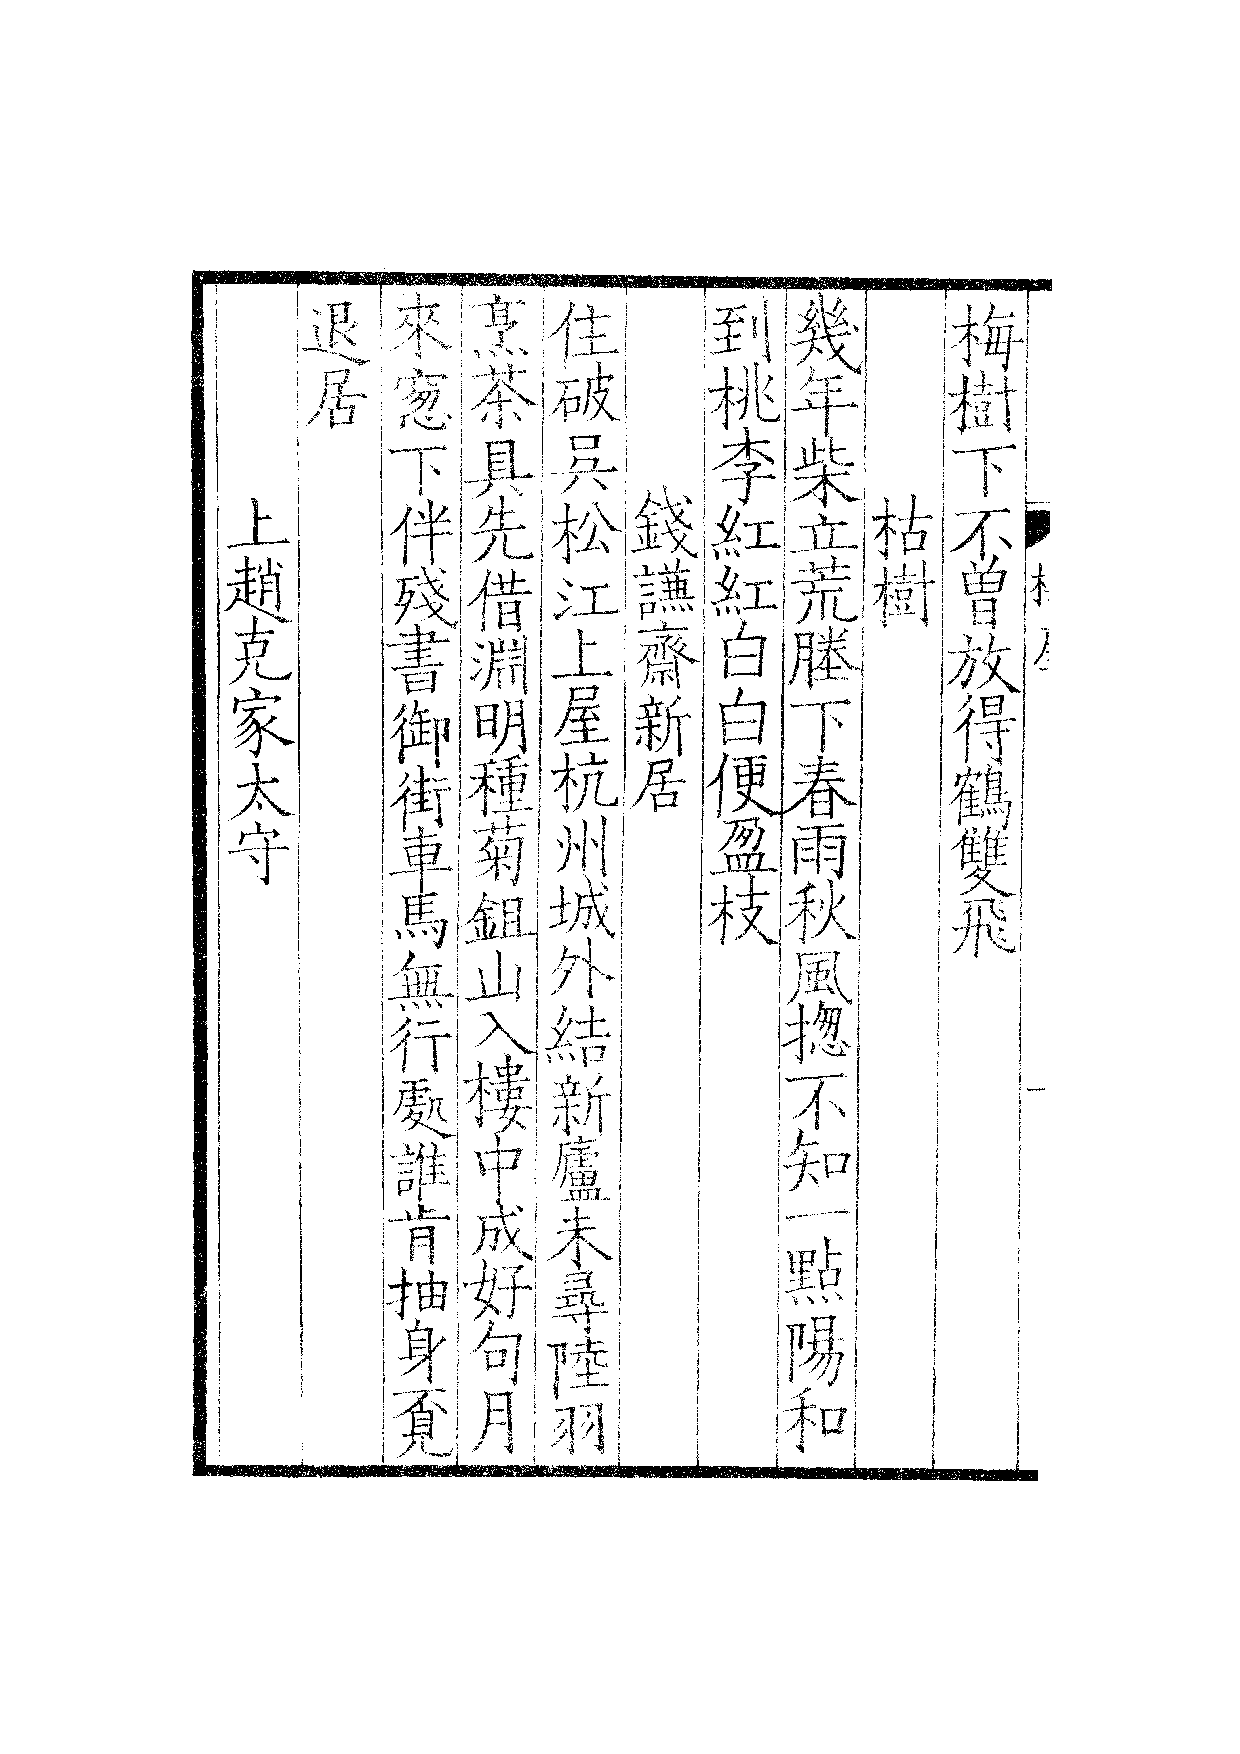 梅樹下不曾放得鶴雙飛
枯樹
幾年柴立荒塍下春雨秋風揔不知一點陽和
到桃李紅紅白白便盈枝
錢謙齋新居
住破吳松江上屋杭州城外結新廬未尋陸羽
烹茶具先借淵明種菊鉏山入樓中成好句月
來窻下伴殘書御街車馬無行處誰肯抽身覔
退居
上趙克家太守